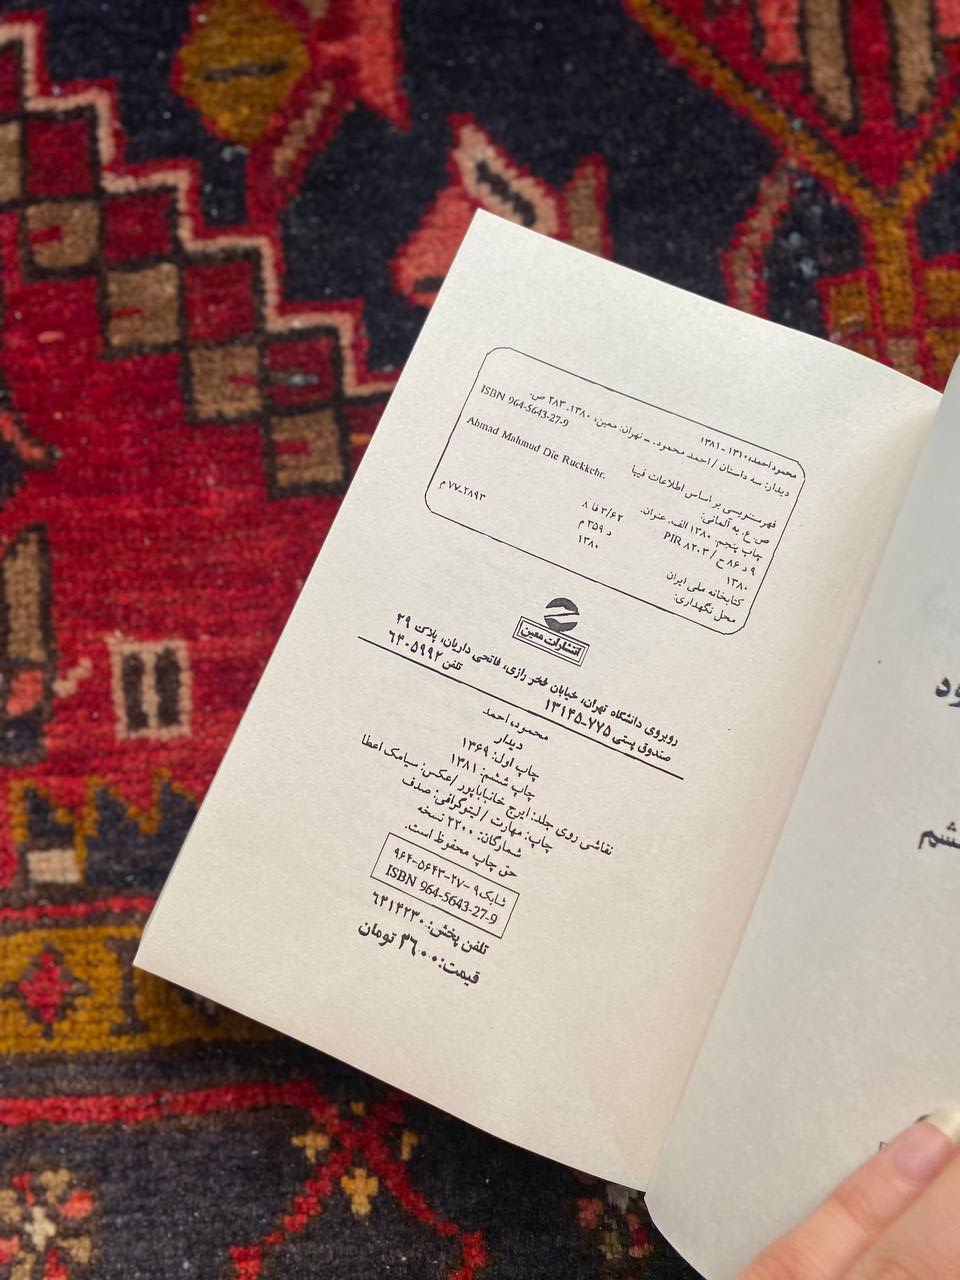 محمود، احمد، ۱۳۱۰ - ۱۳۸۱
دیدار: سه داستان / احمد محمود. ـ تهران: معین، ۱۳۸۰. ۲۸۳ ص.
ISBN 964-5643-27-9
فهرستنویسی بر اساس اطلاعات فیپا
Ahmad Mahmud Die Ruckkehr.
ص. ع. به آلمانی:
چاپ پنجم: ۱۳۸۰ الف. عنوان.
۹ د ۸۶ ح / PIR ۸۲۰۳
۳/۶۲ فا ۸
د ۳۵۹ م
۱۳۸۰
۱۳۸۰
کتابخانه ملی ایران
۷۷-۲۸۹۳ م
محل نگهداری:
انتشارات معین
روبروی دانشگاه تهران، خیابان فخر رازی، فاتحی داریان، پلاک ۲۹
صندوق پستی ۷۷۵-۱۳۱۴۵ تلفن ۶۴۰۵۹۹۲
محمود، احمد
دیدار
چاپ اول: ۱۳۶۹
چاپ ششم: ۱۳۸۱
نقاشی روی جلد: ایرج خانباباپور / عکس: سیامک اعطا
چاپ: مهارت / لیتوگرافی: صدف
شمارگان: ۲۲۰۰ نسخه
حق چاپ محفوظ است.
شابک ۹-۲۷-۵۶۴۳-۹۶۴
ISBN 964-5643-27-9
تلفن پخش: ۶۴۱۴۲۳۰
قیمت: ۲۶۰۰ تومان